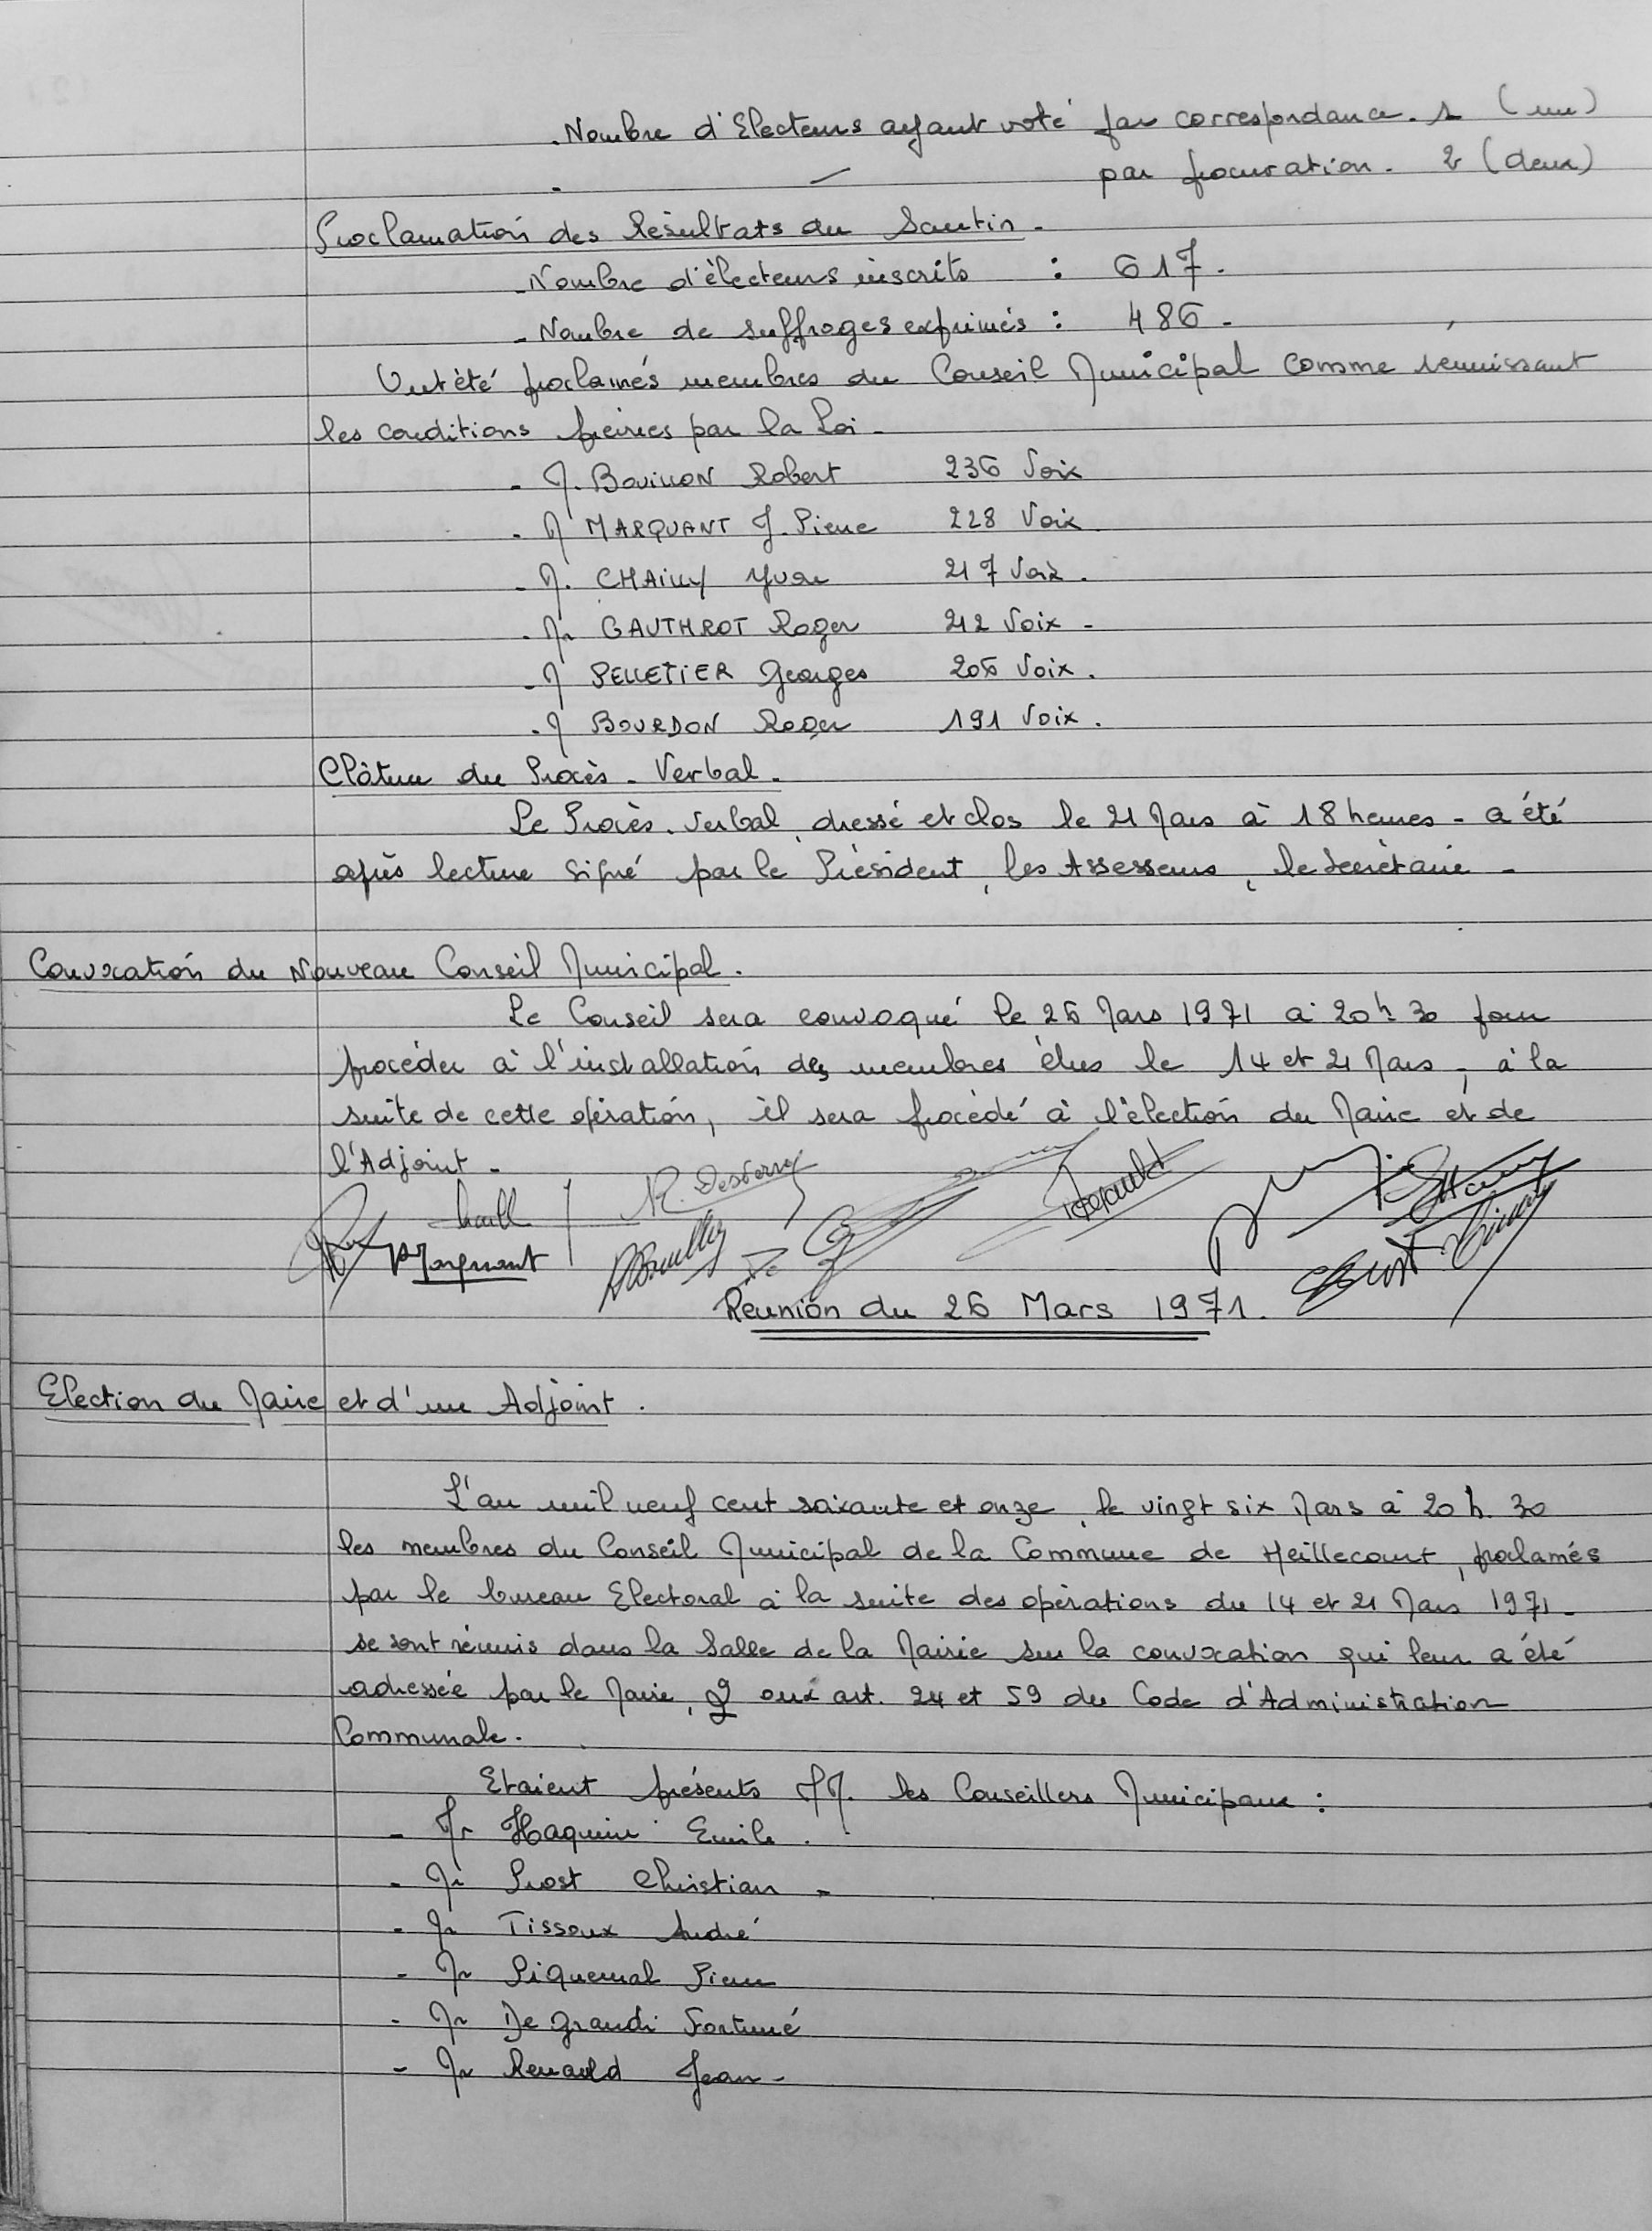 . Nombre d'Electeurs ayant voté par correspondance. 1 (un)
. — par procuration. 2 (deux)
Proclamation des Résultats du Scrutin.
- Nombre d'électeurs inscrits : 617.
- Nombre de suffrages exprimés : 486.
Ont été proclamés membres du Conseil Municipal comme reunissant
les conditions par la Loi.
- M. BOUILLON Robert 236 Voix
- M MARQUANT J. Pierre 228 Voix
- M. CHAILLY Yvon 217 Voix.
- Mr GAUTHROT Roger 212 Voix -
- M PELLETIER Georges 206 Voix.
- M BOURDON Roger 191 Voix.
Clôture du Procès-Verbal.
Le Procès-Verbal, dressé et clos le 21 Mars à 18 heures - a été
après lecture signé par le Président, les Assesseurs, le Secrétaire -
Convocation du Nouveau Conseil Municipal.
Le Conseil sera convoqué le 26 Mars 1971 à 20h 30 pour
procéder à l'installation des membres élus le 14 et 21 Mars, à la
suite de cette opération, il sera procédé à l'élection du Maire et de
l'Adjoint -
Marquant
Réunion du 26 Mars 1971.
Election du Maire et d'un Adjoint.
L'an mil neuf cent soixante et onze, le vingt six Mars à 20 h. 30
les membres du Conseil Municipal de la Commune de Heillecourt, proclamés
par le bureau Electoral à la suite des opérations du 14 et 21 Mars 1971 -
se sont réunis dans la Salle de la Mairie sur la convocation qui leur a été
adressée par le Maire, aux art. 24 et 59 du Code d'Administration
Communale.
Etaient présents MM. les Conseillers Municipaux :
- Mr Haquin Emile.
- Mr Prost Christian -
- Mr Tissoux André
- Mr Piquemal Pierre
- Mr De Grandi Fortuné
- Mr Renauld Jean -